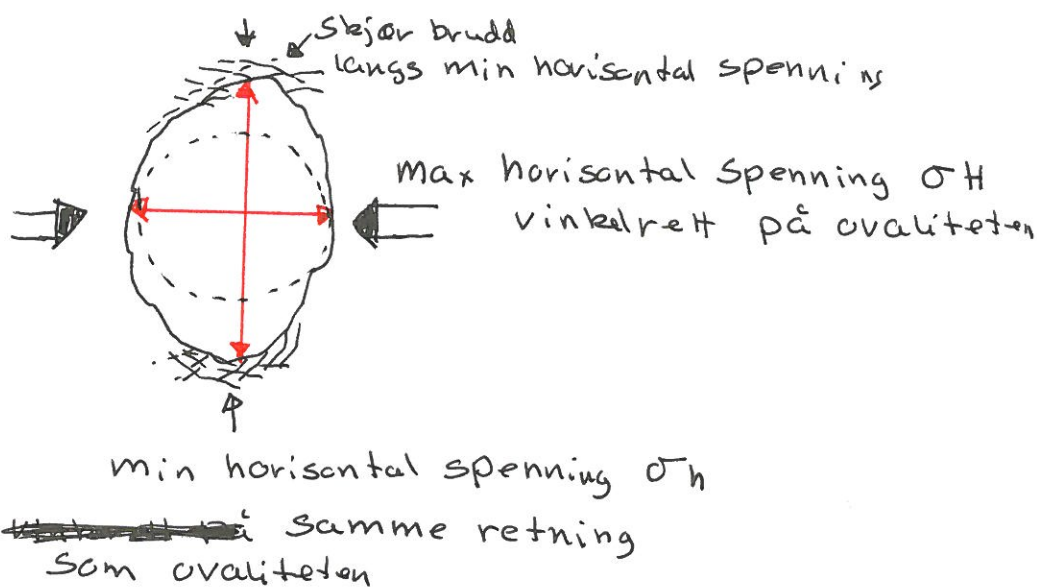 Skjær brudd
langs min horisontal spenning
max horisontal spenning σH
vinkelrett på ovaliteten
min horisontal spenning σh
samme retning
som ovaliteten